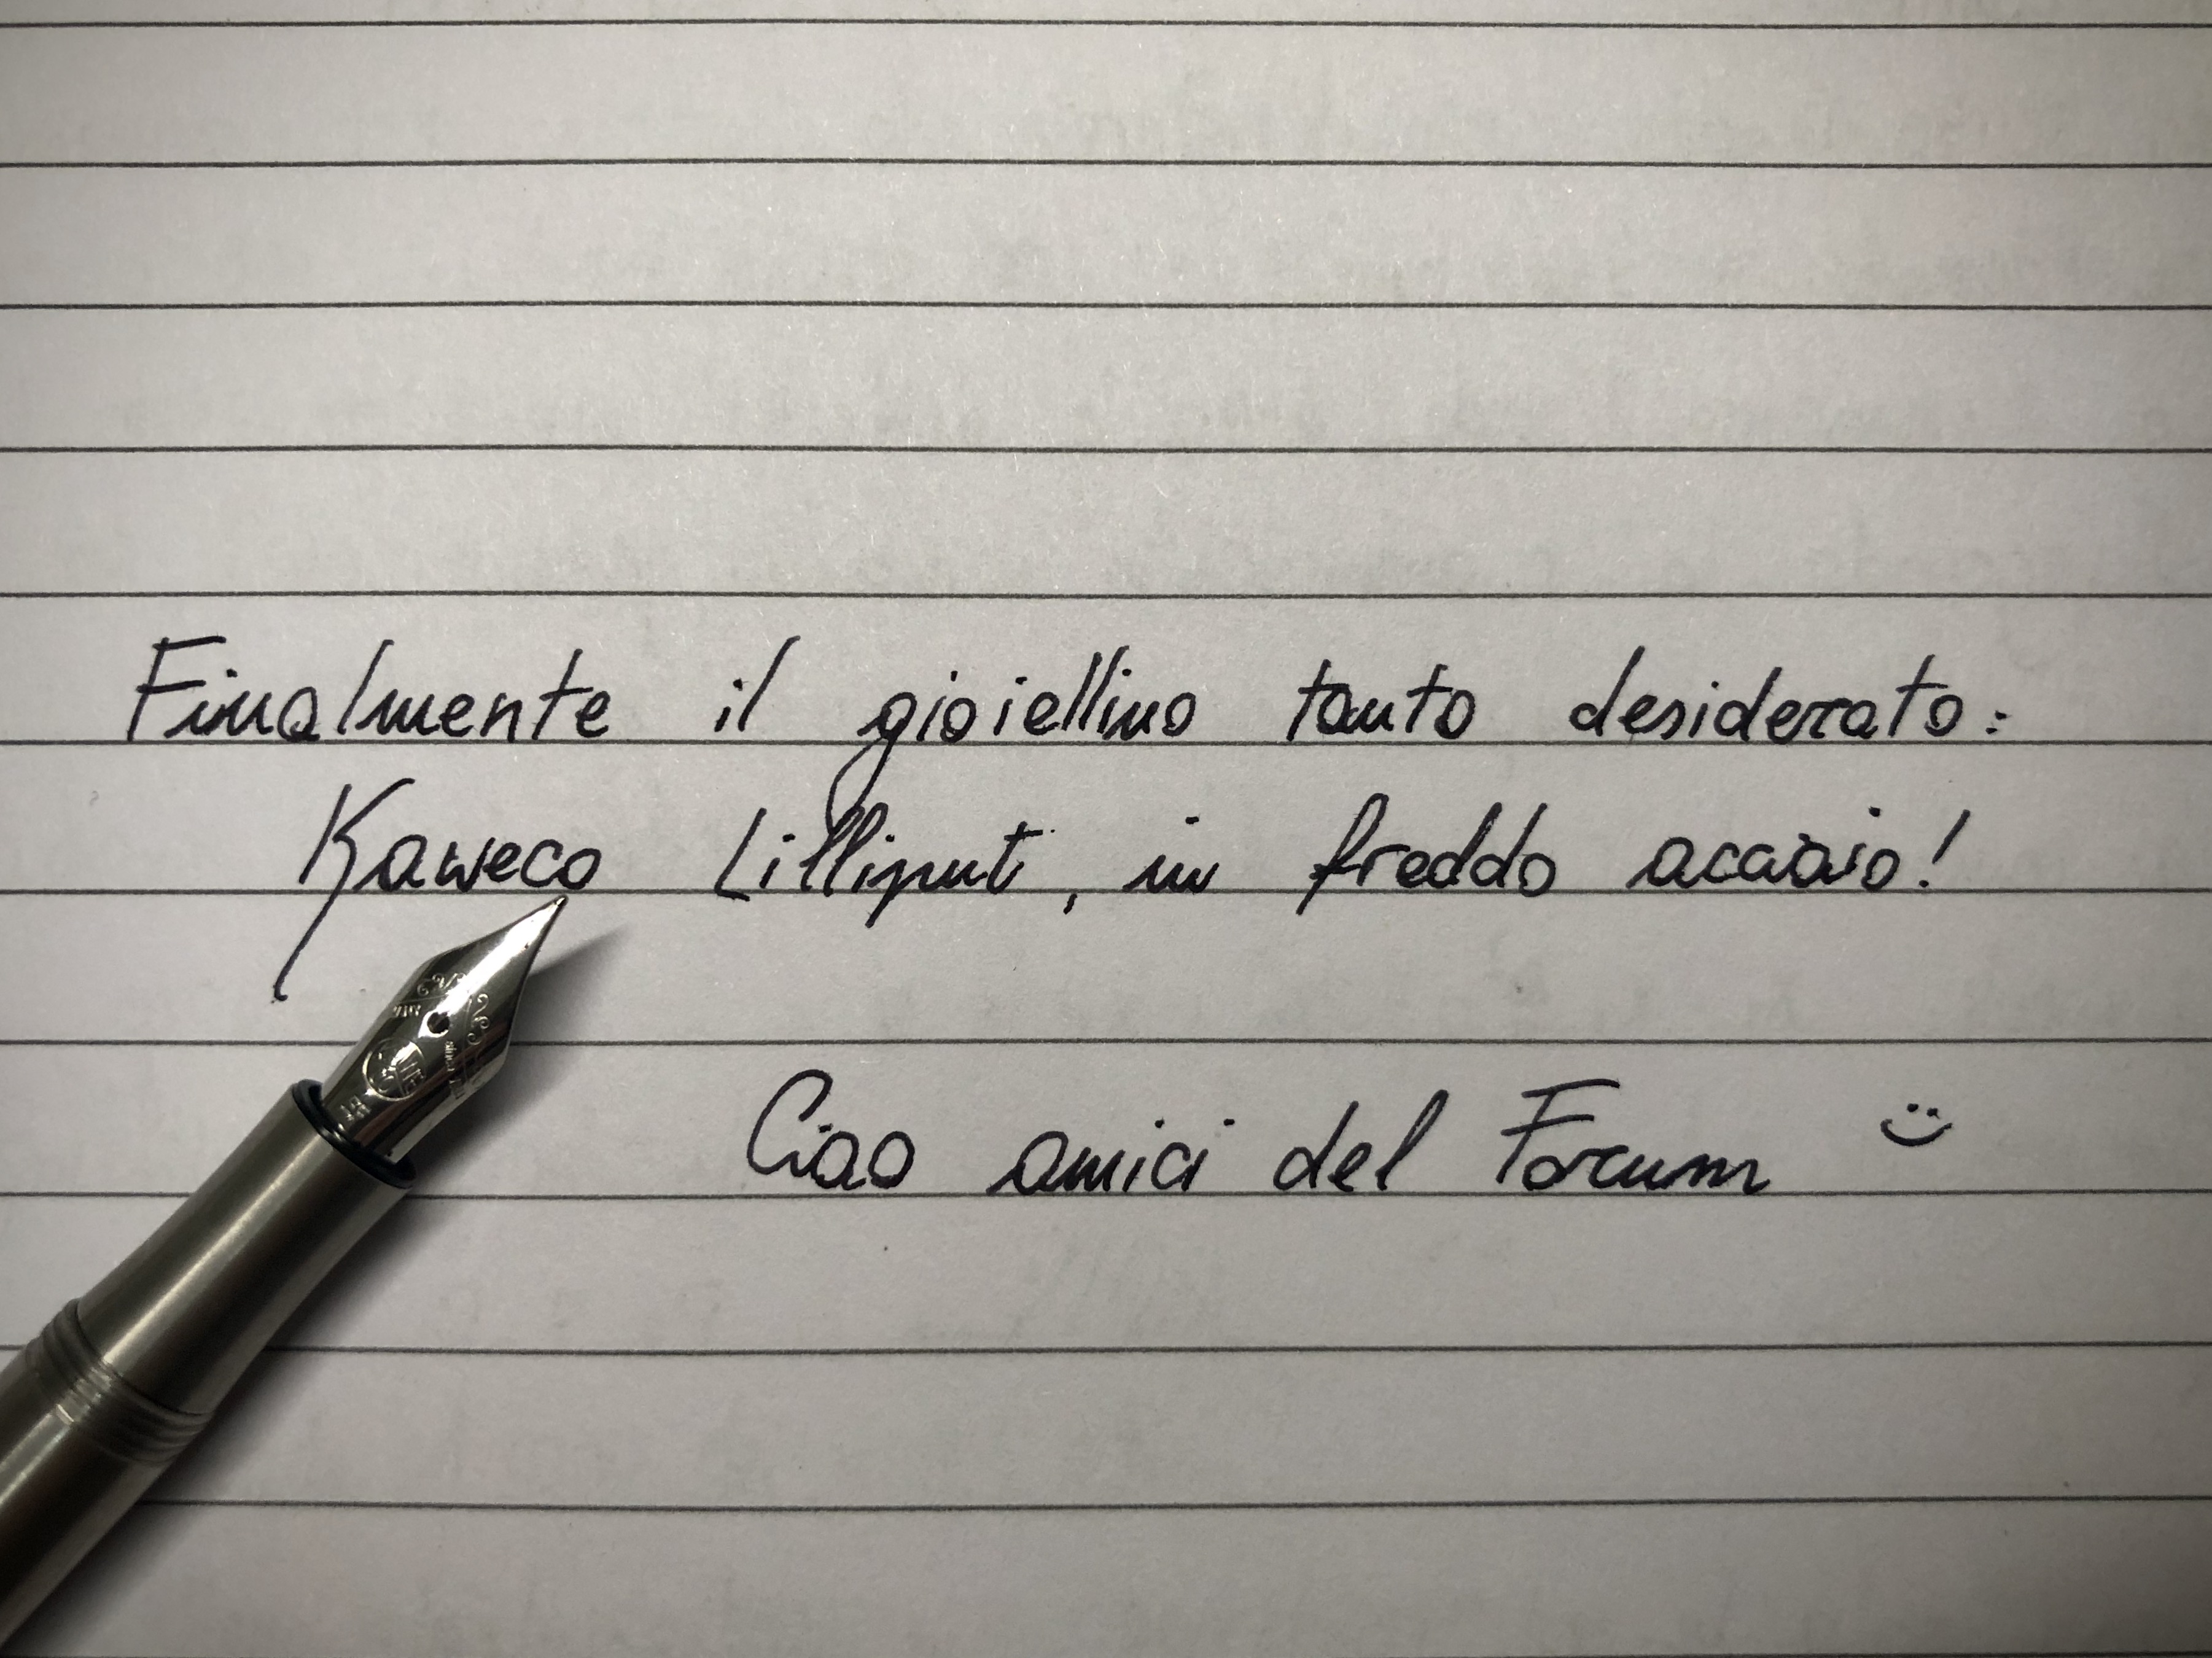 Finalmente il gioiellino tanto desiderato:
Kaweco Lilliput, in freddo acciaio!
Ciao amici del Forum